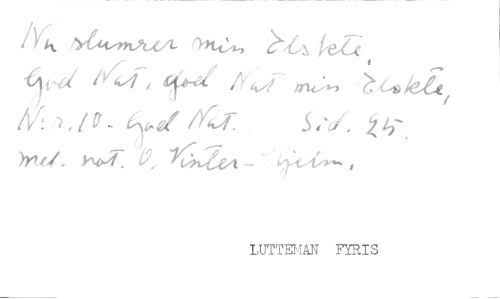 Nu slumrer min Elskte,
God Nat, god Nat min Elskte,
N:r. 10 - God Nat. Sid. 25.
med. not. O. Vinter-Hjelm.
LUTTEMAN FYRIS